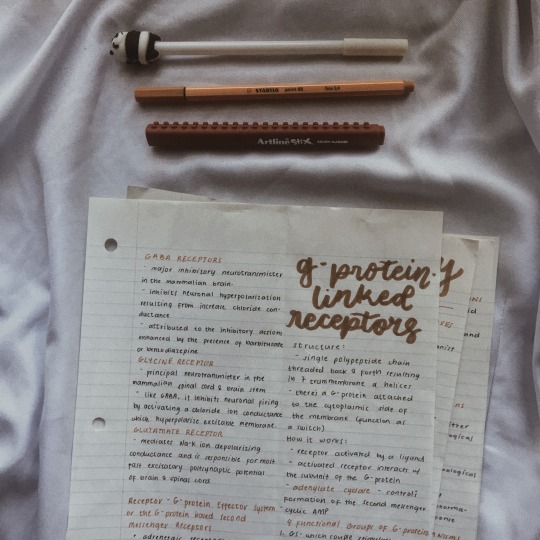 STABILO point 88 fine 0,4
Artline Stix
GABA RECEPTORS
- major inhibitory neurotransmitter
in the mammalian brain.
- inhibits neuronal hyperpolarization
resulting from increase chloride con-
ductance
- attributed to the inhibitory actions
enhanced by the presence of barbiturate
or benzodiazepine.
GLYCINE RECEPTOR
- principal neurotransmitter in the
mammalian spinal cord & brain stem
- like GABA, it inhibits neuronal firing
by activating a chloride ion conductance
which hyperpolarize excitable membrane.
GLUTAMATE RECEPTOR
- mediates Na-K ion depolarizing
conductance and is responsible for most
fast excitatory postsynaptic potential
of brain & spinal cord.
Receptor - G-protein Effector System
or the G-protein based second
Messenger Receptors
- adrenergic
g-protein
linked
receptors
structure:
- single polypeptide chain
threaded back & forth resulting
in 7 transmembrane α helices
- there's a G-protein attached
to the cytoplasmic side of
the membrane (function as
a switch)
How it works:
- receptor activated by a ligand
- activated receptor interact w/
the subunit of the G-protein
- adenylate cyclase - control
formation of the second messenger
cyclic AMP
4 functional Groups of G-protein
1. GS: which couple